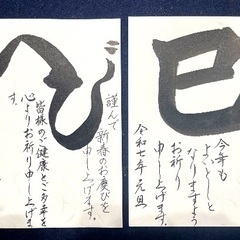 へび
謹んで
新春のお慶びを
申し上げます。
皆様のご健康とご多幸を
心よりお祈り申し上げま
す。
巳
今年も
よいとしと
なりますよう
お祈り
申し上げます。
令和七年 元旦